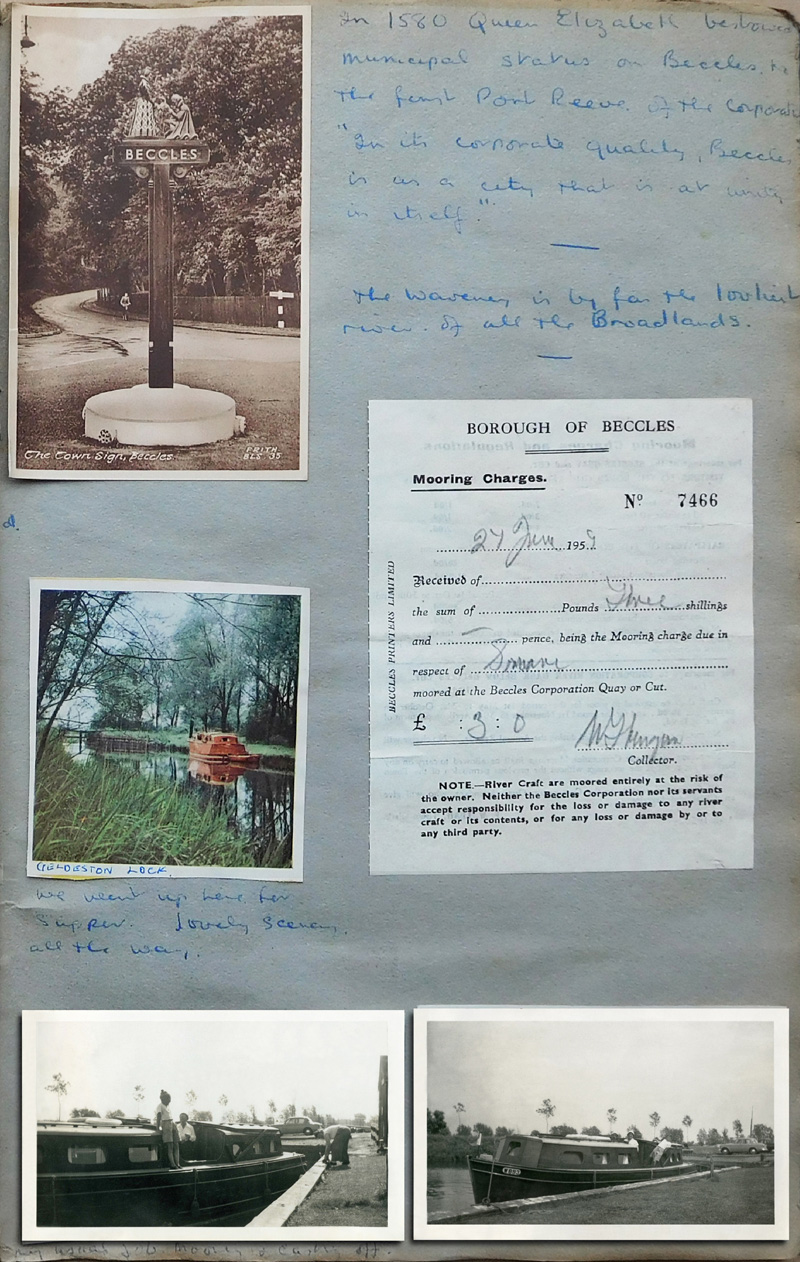 In 1580 Queen Elizabeth bestowed
municipal status on Beccles.
the first Port Reeve of the Corporat
"In its corporate quality, Beccles
is as a city that is at unity
in itself."
The Waveney is by far the loveliest
river of all the Broadlands.
BECCLES
The Town Sign, Beccles.
FRITH
BLS 35
BOROUGH OF BECCLES
Mooring Charges.
Nº 7466
27 June 1959
Received of
the sum of Pounds Three shillings
and — pence, being the Mooring charge due in
respect of
moored at the Beccles Corporation Quay or Cut.
£ : 3 : 0
Collector.
NOTE.—River Craft are moored entirely at the risk of
the owner. Neither the Beccles Corporation nor its servants
accept responsibility for the loss or damage to any river
craft or its contents, or for any loss or damage by or to
any third party.
BECCLES PRINTERS LIMITED
GELDESTON LOCK.
we went up here for
supper. Lovely scenery
all the way.
my usual job mooring & casting off.